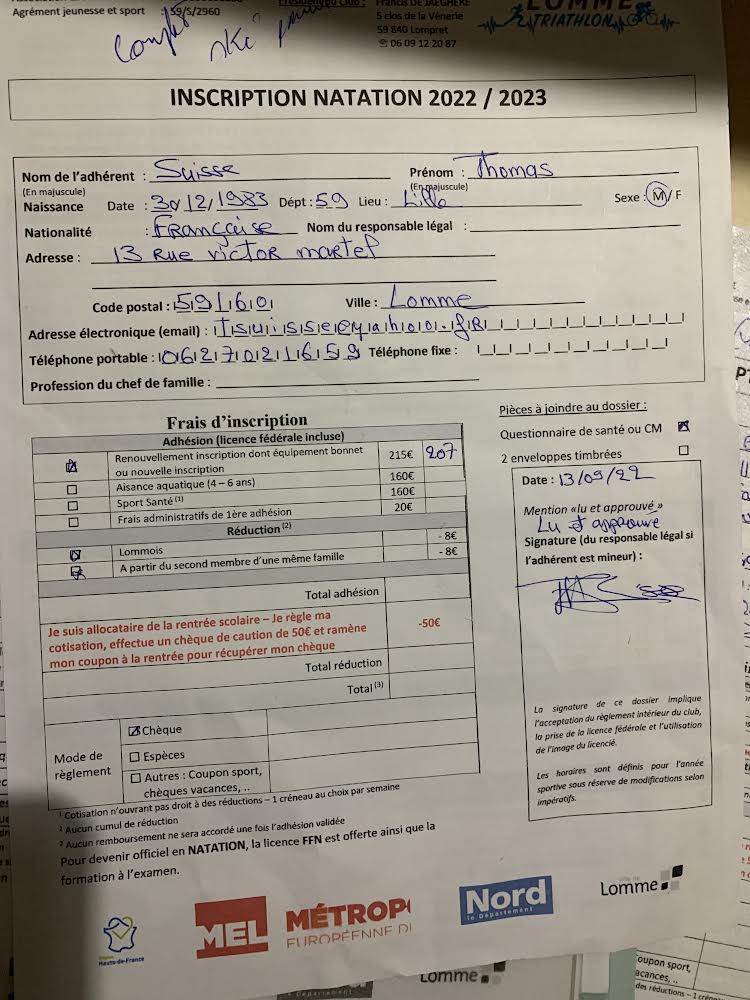 Agrément jeunesse et sport 59/S/2960
Président du Club : Francis DE JAEGHERE
5 clos de la Vénerie
59 840 Lompret
☎ 06 09 12 20 87
LOMME
TRIATHLON
INSCRIPTION NATATION 2022 / 2023
Nom de l'adhérent : Suisse Prénom : Thomas
(En majuscule) (En majuscule)
Naissance Date : 30/12/1983 Dépt : 59 Lieu : Lille Sexe : M / F
Nationalité : Française Nom du responsable légal :
Adresse : 13 Rue victor martel
Code postal : 59160 Ville : Lomme
Adresse électronique (email) : Tsuisse@yahoo.fR
Téléphone portable : 0627021659 Téléphone fixe :
Profession du chef de famille :
Frais d'inscription
Adhésion (licence fédérale incluse)
Renouvellement inscription dont équipement bonnet
ou nouvelle inscription 215€ 207
Aisance aquatique (4 – 6 ans) 160€
Sport Santé (1) 160€
Frais administratifs de 1ère adhésion 20€
Réduction (2)
Lommois - 8€
A partir du second membre d'une même famille - 8€
Total adhésion
Je suis allocataire de la rentrée scolaire – Je règle ma
cotisation, effectue un chèque de caution de 50€ et ramène
mon coupon à la rentrée pour récupérer mon chèque -50€
Total réduction
Total (3)
Mode de
règlement
Chèque
Espèces
Autres : Coupon sport,
chèques vacances, ..
Pièces à joindre au dossier :
Questionnaire de santé ou CM
2 enveloppes timbrées
Date : 13/09/22
Mention «lu et approuvé »
Lu et approuvé
Signature (du responsable légal si
l'adhérent est mineur) :
La signature de ce dossier implique
l'acceptation du règlement intérieur du club,
la prise de la licence fédérale et l'utilisation
de l'image du licencié.
Les horaires sont définis pour l'année
sportive sous réserve de modifications selon
impératifs.
1 Cotisation n'ouvrant pas droit à des réductions – 1 créneau au choix par semaine
2 Aucun cumul de réduction
3 Aucun remboursement ne sera accordé une fois l'adhésion validée
Pour devenir officiel en NATATION, la licence FFN est offerte ainsi que la
formation à l'examen.
Hauts-de-France
MEL
MÉTROP
EUROPÉENNE D
Nord
le Département
Lomme
Lomme
oupon sport,
acances, ..
des réductions – 1 crén